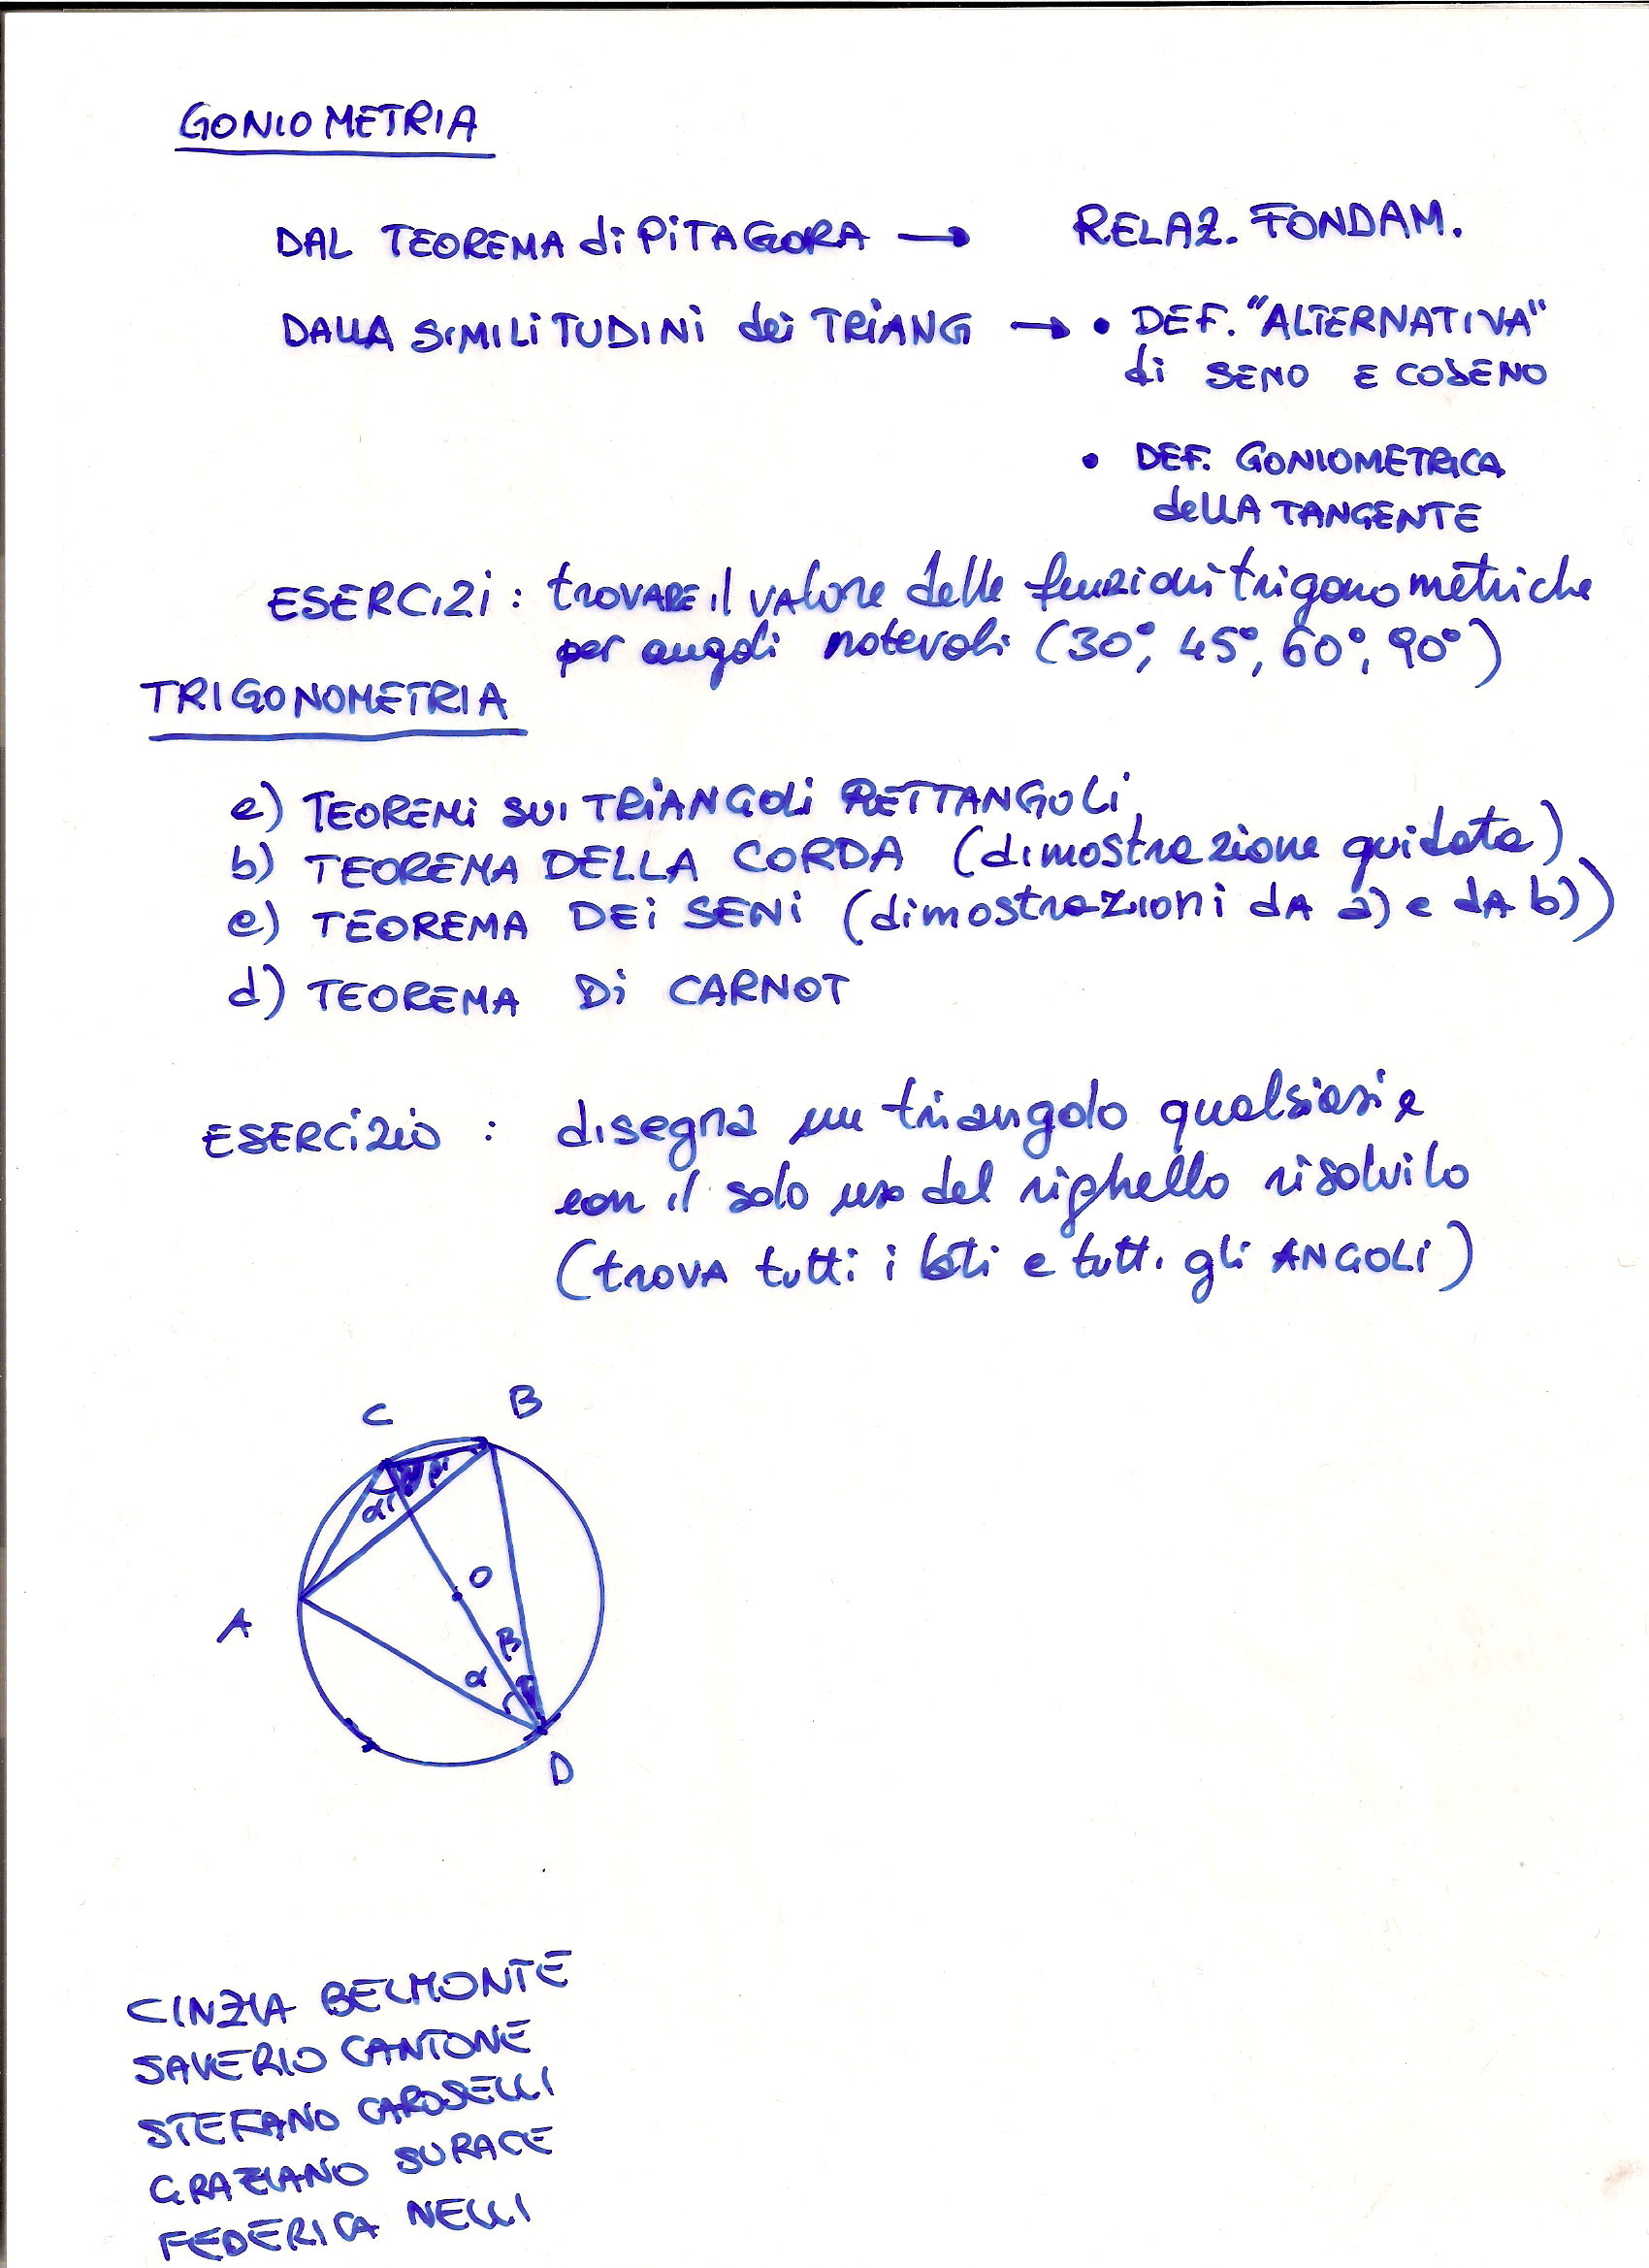 GONIOMETRIA
DAL TEOREMA di PiTAGORA → RELAZ. FONDAM.
DALLA SIMILITUDINI dei TRIANG → • DEF. "ALTERNATIVA"
di SENO E COSENO
• DEF. GONIOMETRICA
dellA TANGENTE
ESERCIZI : trovare il valore delle funzioni trigonometriche
per angoli notevoli (30°, 45°, 60°, 90°)
TRIGONOMETRIA
a) TEOREMI SUI TRIANGOLI RETTANGOLI
b) TEOREMA DELLA CORDA (dimostrazione guidata)
c) TEOREMA DEI SENI (dimostrazioni dA a) e dA b))
d) TEOREMA Di CARNOT
ESERCIZIO : disegna un triangolo qualsiasi e
con il solo uso del righello risolvilo
(trova tutti i lati e tutti gli ANGOLI)
C B
α' β'
O
A
β
α
D
CINZIA BELMONTE
SAVERIO CANTONE
STEFANO CAROSELLI
GRAZIANO SURACE
FEDERICA NELLI